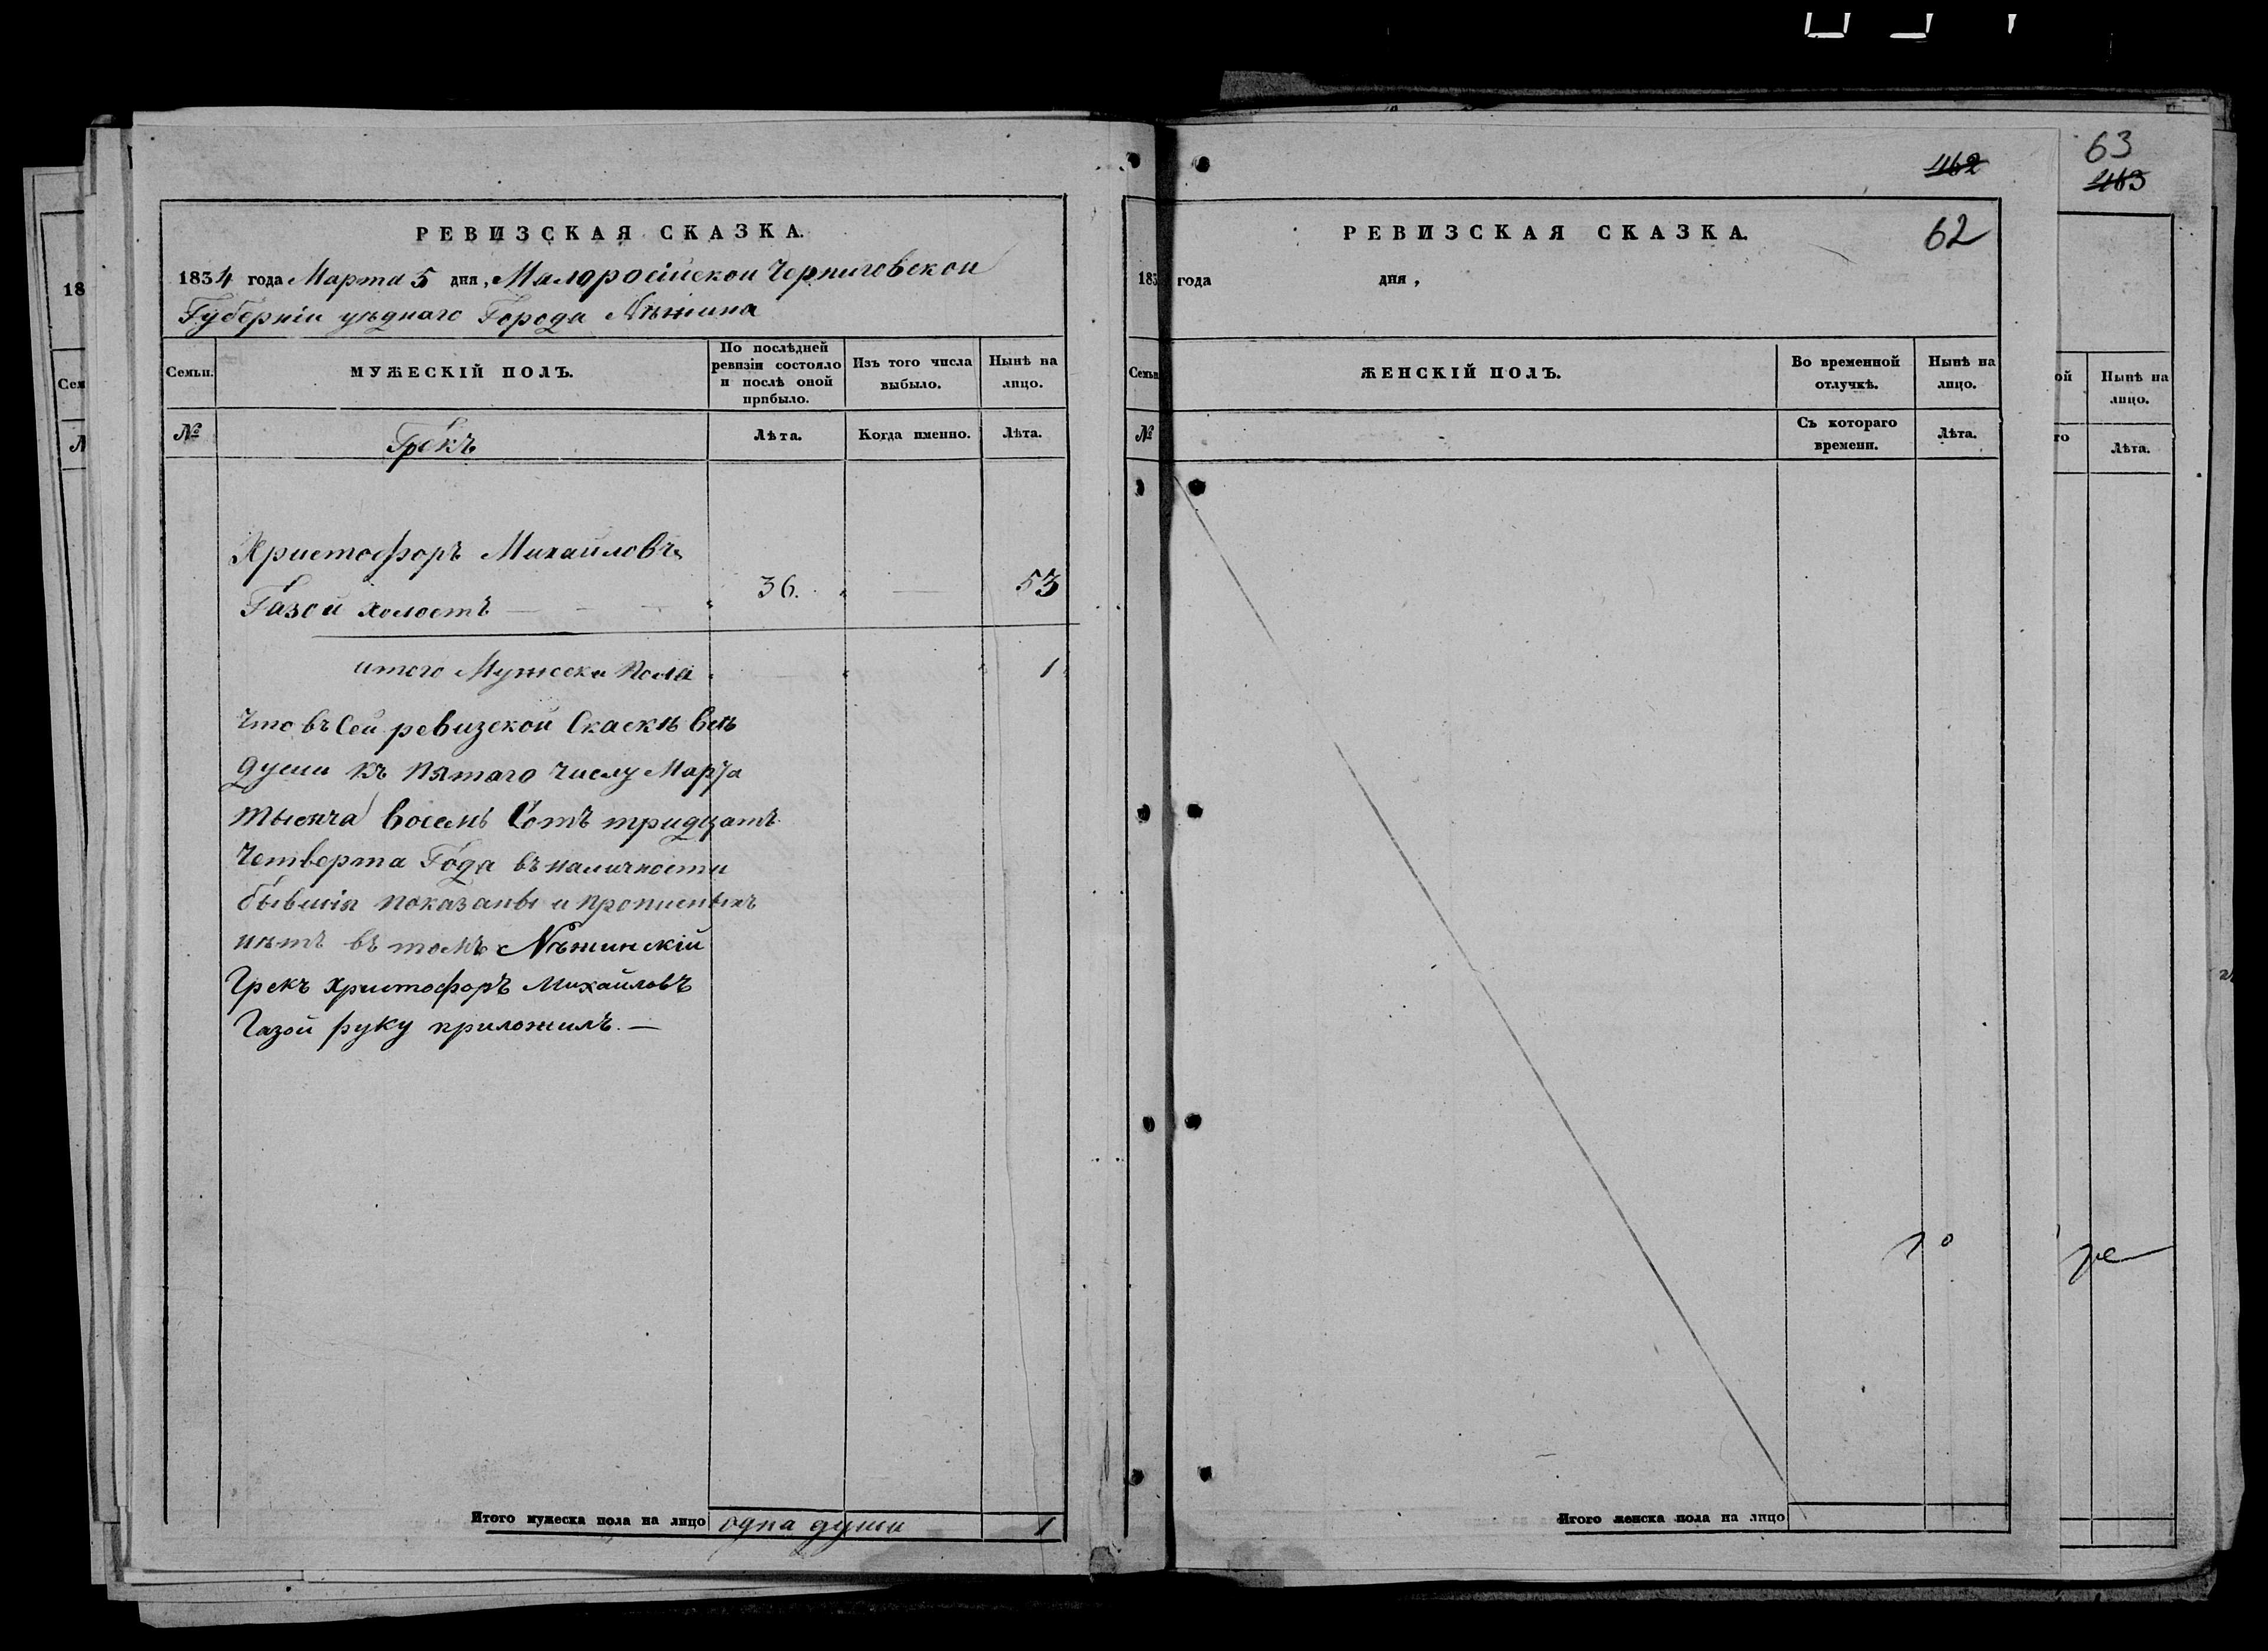 РЕВИЗСКАЯ СКАЗКА.
1834 года Марта 5 дня, Малоросійской Черниговской
Губерніи уѣднаго Города Нѣжина
Семьи.
МУЖЕСКІЙ ПОЛЪ.
По послѣдней
ревизіи состояло
и послѣ оной
прибыло.
Изъ того числа
выбыло.
Нынѣ на
лицо.
№
Грекъ
Лѣта.
Когда именно.
Лѣта.
Христофоръ Михайловъ
Газой холостъ — 36. — 53
итого Мужеска Пола 1
Что въ Сей ревизской Скаскѣ всѣ
души къ Пятаго числу Марта
тысяча восемь Сотъ тридцать
Четверта Года въ наличности
бывшія показаны и прописныхъ
нѣтъ въ томъ Нѣжинскій
Грекъ Христофоръ Михайловъ
Газой руку приложилъ. —
Итого мужеска пола на лицо одна душа 1
462
62
РЕВИЗСКАЯ СКАЗКА.
183 года дня,
Семьи
ЖЕНСКІЙ ПОЛЪ.
Во временной
отлучкѣ.
Нынѣ на
лицо.
№
Съ котораго
времени.
Лѣта.
Итого женска пола на лицо
63
463
ой
Нынѣ на
лицо.
го
Лѣта.
18
Сем